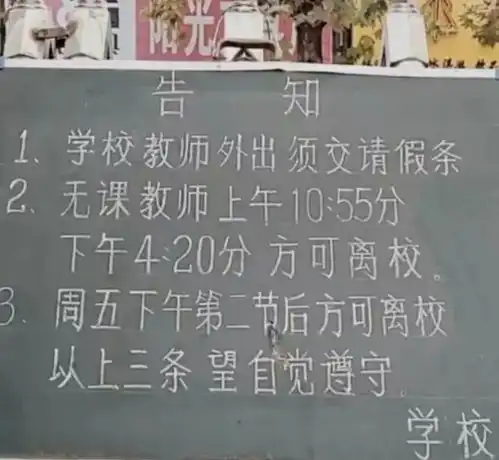 阳光
告 知
1、学校教师外出须交请假条
2、无课教师上午10:55分
下午4:20分 方可离校。
3、周五下午第二节后方可离校
以上三条 望自觉遵守。
学校